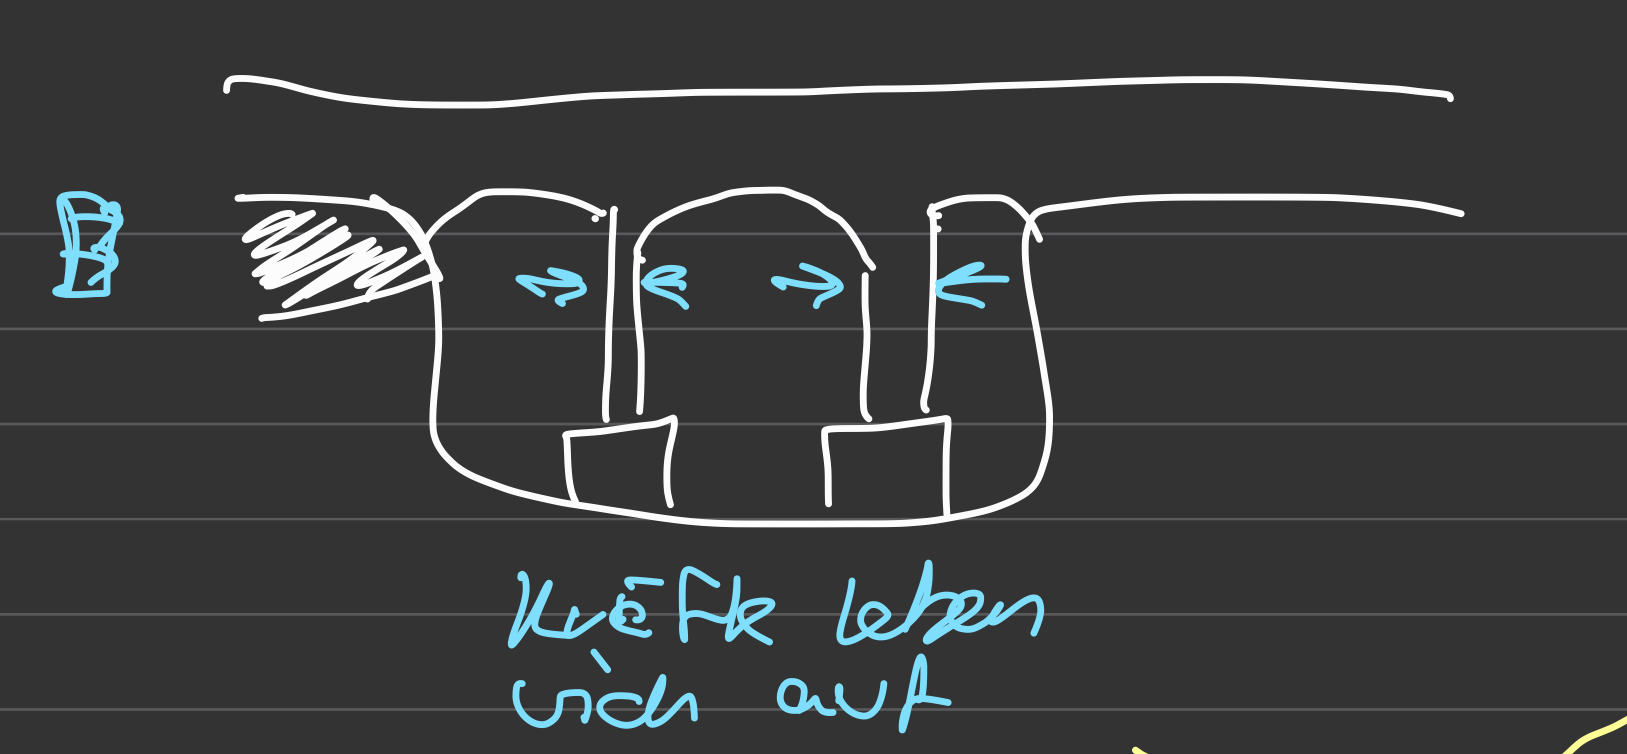 Kräfte heben
sich auf